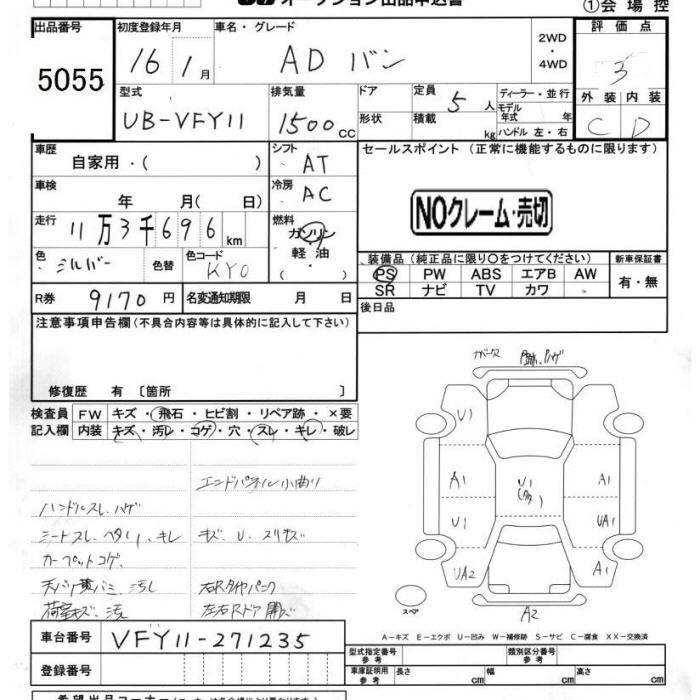 オークション出品申込書
①会場控
出品番号 初度登録年月 車名・グレード 2WD・4WD 評価点
5055 16 1月 AD バン 3
型式 排気量 ドア 定員 5人 ディーラー・並行 外装 内装
UB-VFY11 1500cc 形状 積載 kg モデル年式 年 ハンドル 左・右 C D
車歴 自家用・( ) シフト AT セールスポイント (正常に機能するものに限ります)
車検 年 月( 日) 冷房 AC
NOクレーム・売切
走行 11万3千696km 燃料 ガソリン 軽油 ( ・ )
色 シルバー 色替 色コード KY0
装備品 (純正品に限り○をつけてください) 新車保証書
PS PW ABS エアB AW 有・無
SR ナビ TV カワ
R券 9170円 名変通知期限 月 日 後日品
注意事項申告欄 (不具合内容等は具体的に記入して下さい)
修復歴 有 [箇所 ]
検査員 FW キズ・飛石・ヒビ割・リペア跡・×要
記入欄 内装 キズ・汚レ・コゲ・穴・スレ・キレ・破レ
エンドパネル小曲り
ハンドルスレ、ハゲ
シートスレ、ヘタリ、キレ キズ U スリキズ
カーペットコゲ
天バリ黄バミ、汚レ 右Rタイヤパンク
荷室キズ、汚 左右Rドア
U1
A1 U1 A1
U1 UA1
UA2 A1
スペア A2
A-キズ E-エクボ U-凹み W-補修跡 S-サビ C-腐食 XX-交換済
車台番号 VFY11-271235
型式指定番号 参考 類別区分番号 参考
登録番号 車庫証明用 参考 長さ cm 幅 cm 高さ cm